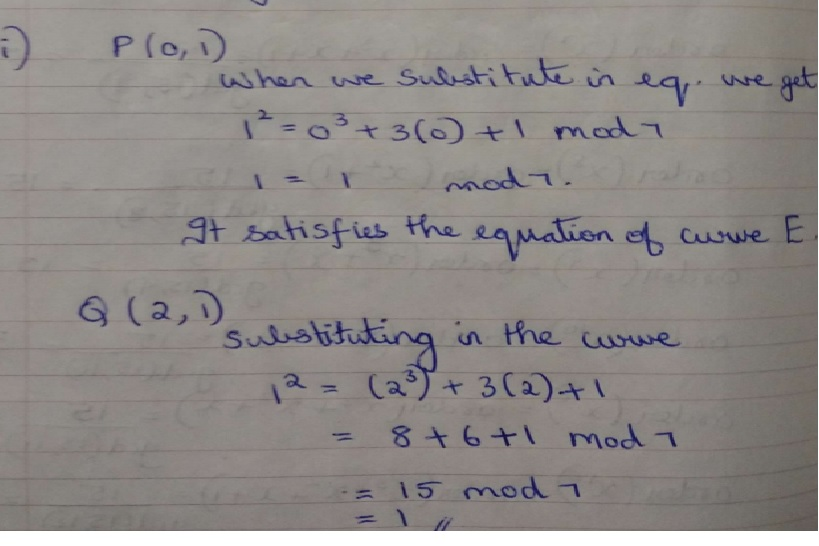 i) P(0,1)
when we substitute in eq. we get
1² = 0³ + 3(0) + 1 mod 7
1 = 1 mod 7.
It satisfies the equation of curve E.
Q(2,1)
substituting in the curve
1² = (2³) + 3(2) + 1
= 8 + 6 + 1 mod 7
= 15 mod 7
= 1 //